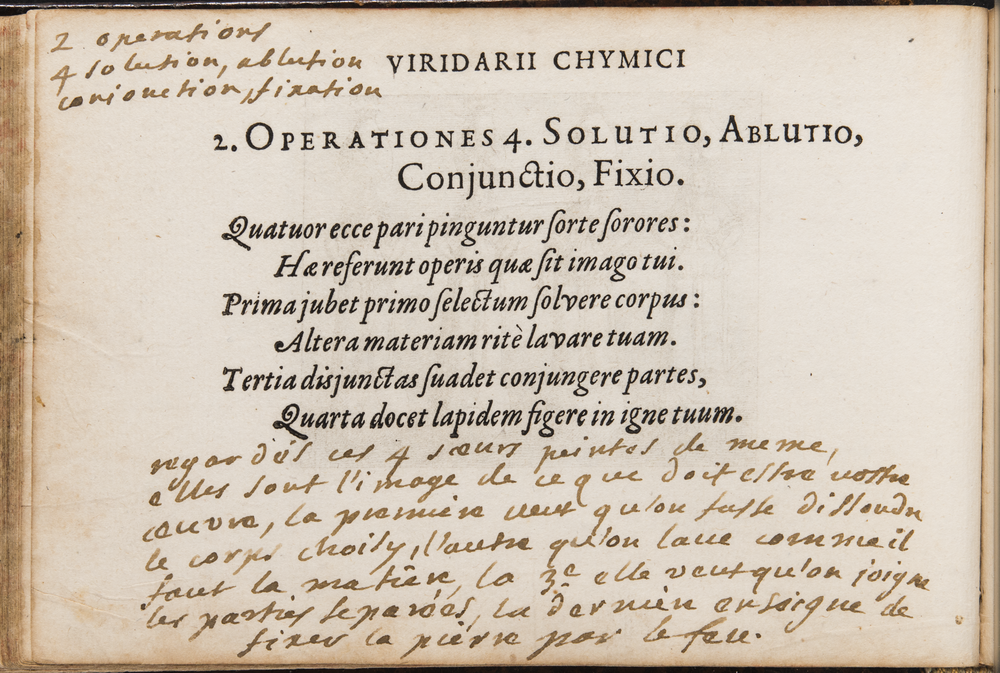 2 operations
4 solution, ablution
conionction, fixation
VIRIDARII CHYMICI
2. OPERATIONES 4. SOLUTIO, ABLUTIO,
Conjunctio, Fixio.
Quatuor ecce pari pinguntur ſorte ſorores:
Hæ referunt operis quæ ſit imago tui.
Prima jubet primo ſelectum ſolvere corpus:
Altera materiam ritè lavare tuam.
Tertia disjunctas ſuadet conjungere partes,
Quarta docet lapidem figere in igne tuum.
regardés ces 4 sœurs peintes de meme,
elles sont l'image de ce que doit estre vostre
œuvre, la premiere veut qu'on fasse dissoudre
le corps choisy, l'autre qu'on laue comme il
faut la matiere, la 3e elle veut qu'on joigne
les parties separées, la derniere enseigne de
fixer la pierre par le feu.